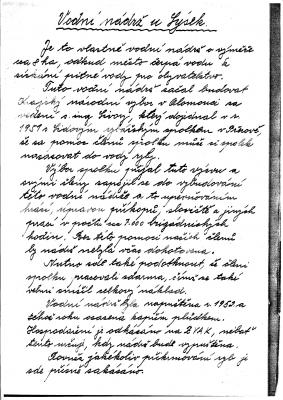 Vodní nádrž u Lýsek.
Je to vlastně vodní nádrž o výměře
ca 8 ha, odkud město čerpá vodu k
pitné vody pro obyvatelstvo.
Tuto vodní nádrž začal budovat
Krajský národní výbor v Olomouci za
vedení s. ing. který dojednal v r.
1951 s Lidovým rybářským spolkem v
že za pomoc členů spolku může si spolek
nasazovat do vody ryby.
Výbor spolku přijal tuto výzvu a
svými členy zapojil se do vybudování
této vodní nádrže a to upevňováním
hrází, úpravou příkopů, sloviště a jiných
prací v počtu na 7.000 brigádnických
hodin. Bez této pomoci našich členů
by nádrž nebyla včas dokončena.
Nutno zde také podotknout, že členi
spolku pracovali zdarma, čímž se také
velmi snížil celkový náklad.
Vodní nádrž byla napuštěna r. 1952 a
téhož roku osazena kapřím plůdkem.
Hospodaření je odkázáno na ZVAK, neboť
tento určuje, kdy nádrž bude vypuštěna.
Rovněž jakékoliv přikrmování ryb je
zde přísně zakázáno.